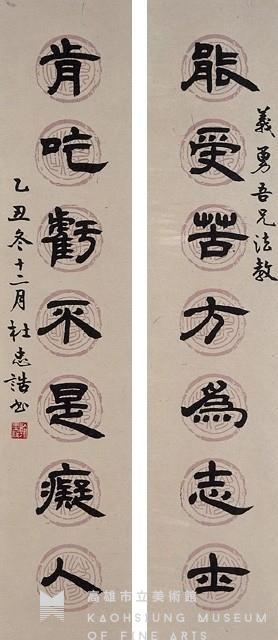 義勇吾兄法教
能受苦方為志士
肯吃虧不是癡人
乙丑冬十二月杜忠誥書
高雄市立美術館
KAOHSIUNG MUSEUM
OF FINE ARTS